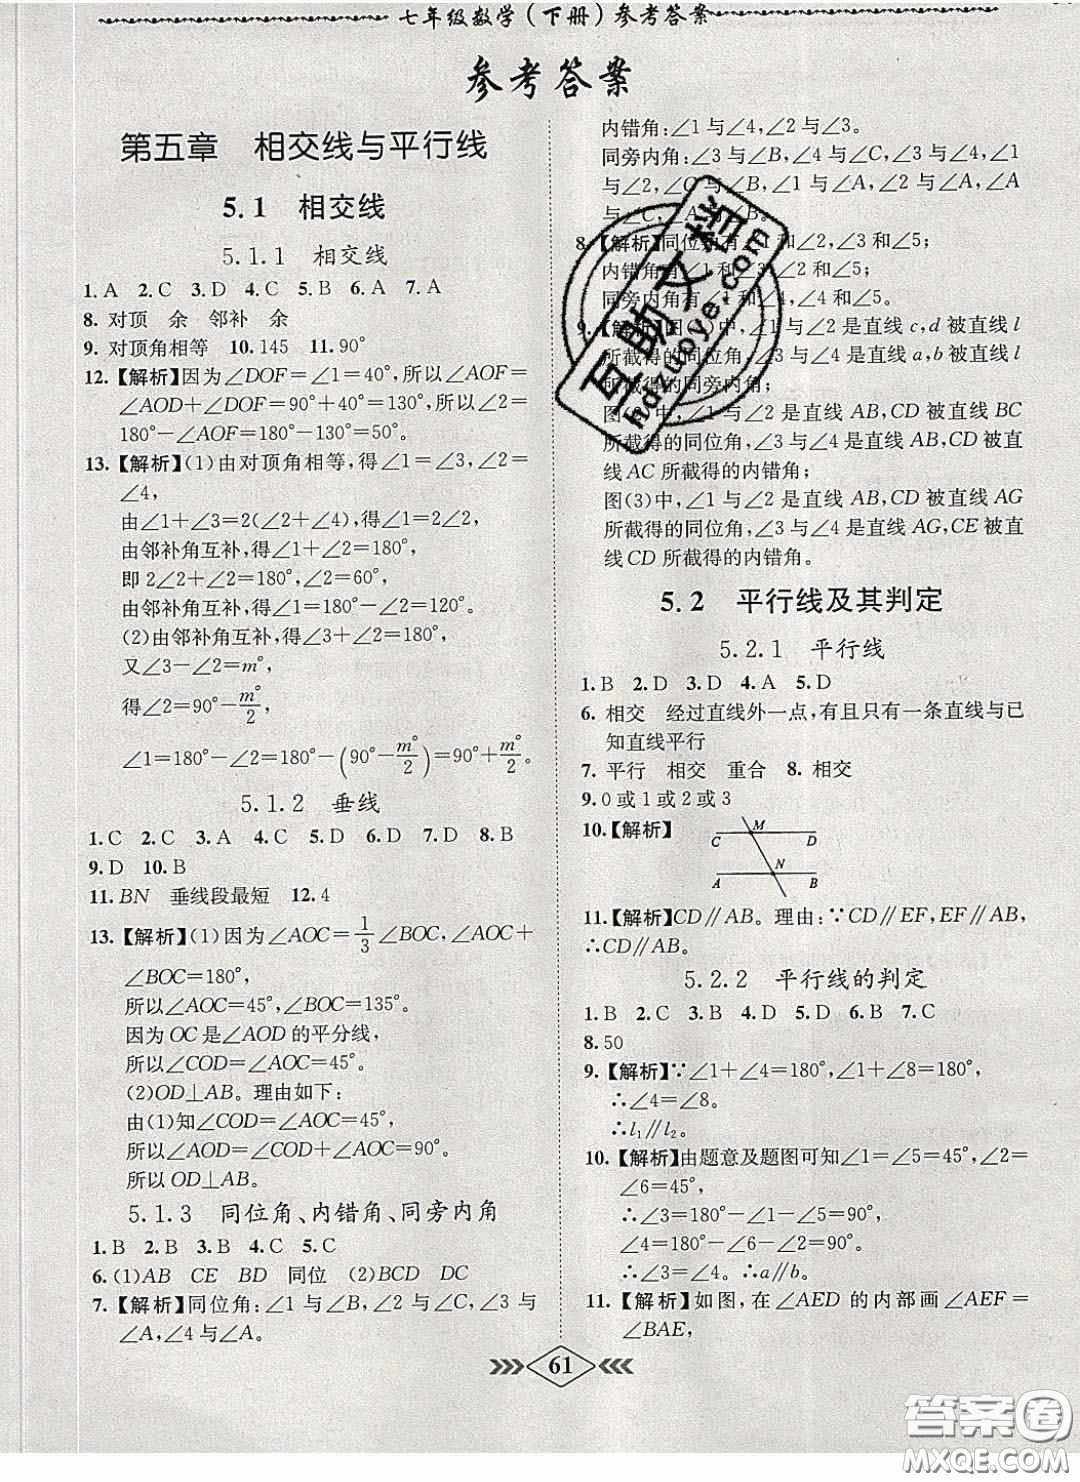 七年级数学(下册)参考答案
参考答案
第五章 相交线与平行线
5.1 相交线
5.1.1 相交线
1.A 2.C 3.D 4.C 5.B 6.A 7.A
8.对顶 余 邻补 余
9.对顶角相等 10.145 11.90°
12.【解析】因为∠DOF=∠1=40°,所以∠AOF=
∠AOD+∠DOF=90°+40°=130°,所以∠2=
180°-∠AOF=180°-130°=50°。
13.【解析】(1)由对顶角相等,得∠1=∠3,∠2=
∠4,
由∠1+∠3=2(∠2+∠4),得∠1=2∠2,
由邻补角互补,得∠1+∠2=180°,
即2∠2+∠2=180°,∠2=60°,
由邻补角互补,得∠1=180°-∠2=120°。
(2)由邻补角互补,得∠3+∠2=180°,
又∠3-∠2=m°,
得∠2=90°-m°/2,
∠1=180°-∠2=180°-(90°-m°/2)=90°+m°/2。
5.1.2 垂线
1.C 2.C 3.A 4.C 5.D 6.D 7.D 8.B
9.D 10.B
11.BN 垂线段最短 12.4
13.【解析】(1)因为∠AOC=1/3∠BOC,∠AOC+
∠BOC=180°,
所以∠AOC=45°,∠BOC=135°。
因为OC是∠AOD的平分线,
所以∠COD=∠AOC=45°。
(2)OD⊥AB。理由如下:
由(1)知∠COD=∠AOC=45°,
所以∠AOD=∠COD+∠AOC=90°,
所以OD⊥AB。
5.1.3 同位角、内错角、同旁内角
1.B 2.B 3.B 4.C 5.C
6.(1)AB CE BD 同位 (2)BCD DC
7.【解析】同位角:∠1与∠B,∠2与∠C,∠3与
∠A,∠4与∠A。
内错角:∠1与∠4,∠2与∠3。
同旁内角:∠3与∠B,∠4与∠C,∠3与∠4,∠1
与∠2,∠C与∠B,∠1与∠A,∠2与∠A,∠A
与∠C,∠A与∠B。
8.【解析】同位角有∠1和∠2,∠3和∠5;
内错角有∠1和∠3,∠2和∠5;
同旁内角有∠1和∠4,∠4和∠5。
9.【解析】图(1)中,∠1与∠2是直线c,d被直线l
所截得的同位角,∠3与∠4是直线a,b被直线l
所截得的同旁内角;
图(2)中,∠1与∠2是直线AB,CD被直线BC
所截得的同位角,∠3与∠4是直线AB,CD被直
线AC所截得的内错角;
图(3)中,∠1与∠2是直线AB,CD被直线AG
所截得的同位角,∠3与∠4是直线AG,CE被直
线CD所截得的内错角。
5.2 平行线及其判定
5.2.1 平行线
1.B 2.D 3.D 4.A 5.D
6.相交 经过直线外一点,有且只有一条直线与已
知直线平行
7.平行 相交 重合 8.相交
9.0或1或2或3
10.【解析】
M
C D
N
A B
11.【解析】CD∥AB。理由:∵CD∥EF,EF∥AB,
∴CD∥AB。
5.2.2 平行线的判定
1.B 2.C 3.B 4.D 5.D 6.B 7.C
8.50
9.【解析】∵∠1+∠4=180°,∠1+∠8=180°,
∴∠4=∠8。
∴l₁∥l₂。
10.【解析】由题意及题图可知∠1=∠5=45°,∠2=
∠6=45°,
∴∠3=180°-∠1-∠5=90°,
∠4=180°-∠6-∠2=90°。
∴∠3=∠4。∴a∥b。
11.【解析】如图,在∠AED的内部画∠AEF=
∠BAE,
61
互助文档
hdzuoye.com
答案圈
MXQE.COM